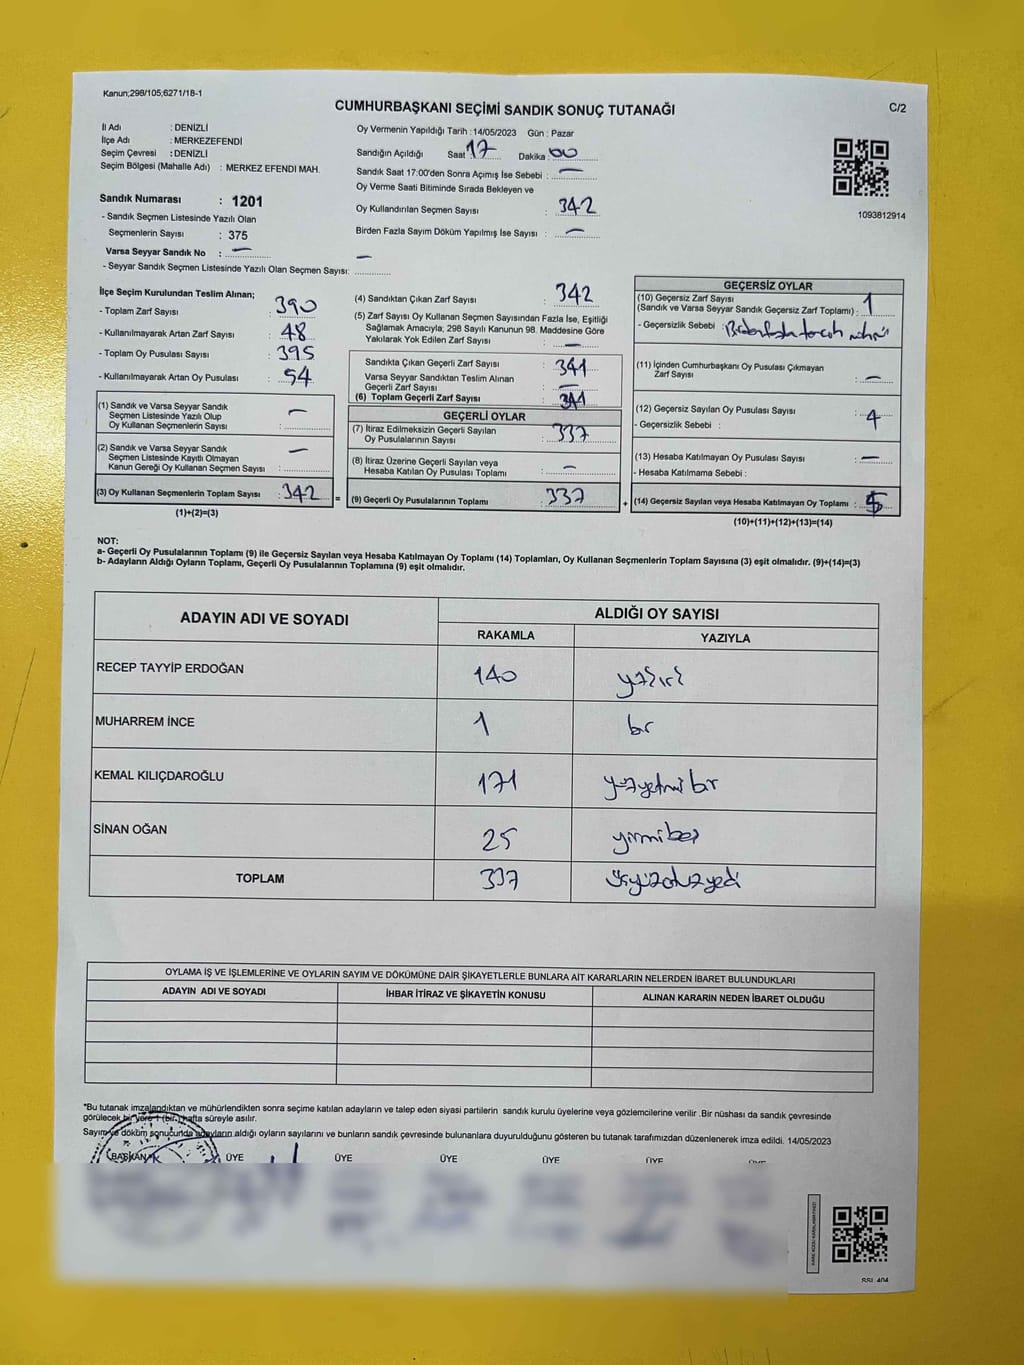 Kanun;298/105;6271/18-1
CUMHURBAŞKANI SEÇİMİ SANDIK SONUÇ TUTANAĞI
C/2
İl Adı : DENİZLİ
İlçe Adı : MERKEZEFENDİ
Seçim Çevresi : DENİZLİ
Seçim Bölgesi (Mahalle Adı) : MERKEZ EFENDİ MAH.
Sandık Numarası : 1201
- Sandık Seçmen Listesinde Yazılı Olan
Seçmenlerin Sayısı : 375
Varsa Seyyar Sandık No : —
- Seyyar Sandık Seçmen Listesinde Yazılı Olan Seçmen Sayısı: —
Oy Vermenin Yapıldığı Tarih : 14/05/2023 Gün : Pazar
Sandığın Açıldığı Saat 17 Dakika : 00
Sandık Saat 17:00'den Sonra Açımış İse Sebebi : —
Oy Verme Saati Bitiminde Sırada Bekleyen ve
Oy Kullandırılan Seçmen Sayısı : 342
Birden Fazla Sayım Döküm Yapılmış İse Sayısı : —
1093812914
İlçe Seçim Kurulundan Teslim Alınan;
- Toplam Zarf Sayısı : 390
- Kullanılmayarak Artan Zarf Sayısı : 48
- Toplam Oy Pusulası Sayısı : 395
- Kullanılmayarak Artan Oy Pusulası : 54
(1) Sandık ve Varsa Seyyar Sandık
Seçmen Listesinde Yazılı Olup
Oy Kullanan Seçmenlerin Sayısı : —
(2) Sandık ve Varsa Seyyar Sandık
Seçmen Listesinde Kayıtlı Olmayan
Kanun Gereği Oy Kullanan Seçmen Sayısı : —
(3) Oy Kullanan Seçmenlerin Toplam Sayısı : 342 =
(1)+(2)=(3)
(4) Sandıktan Çıkan Zarf Sayısı : 342
(5) Zarf Sayısı Oy Kullanan Seçmen Sayısından Fazla İse, Eşitliği
Sağlamak Amacıyla; 298 Sayılı Kanunun 98. Maddesine Göre
Yakılarak Yok Edilen Zarf Sayısı : —
Sandıkta Çıkan Geçerli Zarf Sayısı : 341
Varsa Seyyar Sandıktan Teslim Alınan
Geçerli Zarf Sayısı : —
(6) Toplam Geçerli Zarf Sayısı : 341
GEÇERLİ OYLAR
(7) İtiraz Edilmeksizin Geçerli Sayılan
Oy Pusulalarının Sayısı : 337
(8) İtiraz Üzerine Geçerli Sayılan veya
Hesaba Katılan Oy Pusulası Toplamı : —
(9) Geçerli Oy Pusulalarının Toplamı : 337 +
GEÇERSİZ OYLAR
(10) Geçersiz Zarf Sayısı
(Sandık ve Varsa Seyyar Sandık Geçersiz Zarf Toplamı) : 1
- Geçersizlik Sebebi : Birden fazla tercih mührü
(11) İçinden Cumhurbaşkanı Oy Pusulası Çıkmayan
Zarf Sayısı : —
(12) Geçersiz Sayılan Oy Pusulası Sayısı : 4
- Geçersizlik Sebebi :
(13) Hesaba Katılmayan Oy Pusulası Sayısı : —
- Hesaba Katılmama Sebebi :
(14) Geçersiz Sayılan veya Hesaba Katılmayan Oy Toplamı : 5
(10)+(11)+(12)+(13)=(14)
NOT:
a- Geçerli Oy Pusulalarının Toplamı (9) ile Geçersiz Sayılan veya Hesaba Katılmayan Oy Toplamı (14) Toplamları, Oy Kullanan Seçmenlerin Toplam Sayısına (3) eşit olmalıdır. (9)+(14)=(3)
b- Adayların Aldığı Oyların Toplamı, Geçerli Oy Pusulalarının Toplamına (9) eşit olmalıdır.
ADAYIN ADI VE SOYADI
ALDIĞI OY SAYISI
RAKAMLA YAZIYLA
RECEP TAYYİP ERDOĞAN 140 yüzkırk
MUHARREM İNCE 1 bir
KEMAL KILIÇDAROĞLU 171 yüzyetmiş bir
SİNAN OĞAN 25 yirmibeş
TOPLAM 337 üçyüzotuzyedi
OYLAMA İŞ VE İŞLEMLERİNE VE OYLARIN SAYIM VE DÖKÜMÜNE DAİR ŞİKAYETLERLE BUNLARA AİT KARARLARIN NELERDEN İBARET BULUNDUKLARI
ADAYIN ADI VE SOYADI İHBAR İTİRAZ VE ŞİKAYETİN KONUSU ALINAN KARARIN NEDEN İBARET OLDUĞU
*Bu tutanak imzalandıktan ve mühürlendikten sonra seçime katılan adayların ve talep eden siyasi partilerin sandık kurulu üyelerine veya gözlemcilerine verilir .Bir nüshası da sandık çevresinde
görülecek bir yere 1 (bir) hafta süreyle asılır.
Sayım ve döküm sonucunda adayların aldığı oyların sayılarını ve bunların sandık çevresinde bulunanlara duyurulduğunu gösteren bu tutanak tarafımızdan düzenlenerek imza edildi. 14/05/2023
BAŞKAN ÜYE ÜYE ÜYE ÜYE ÜYE